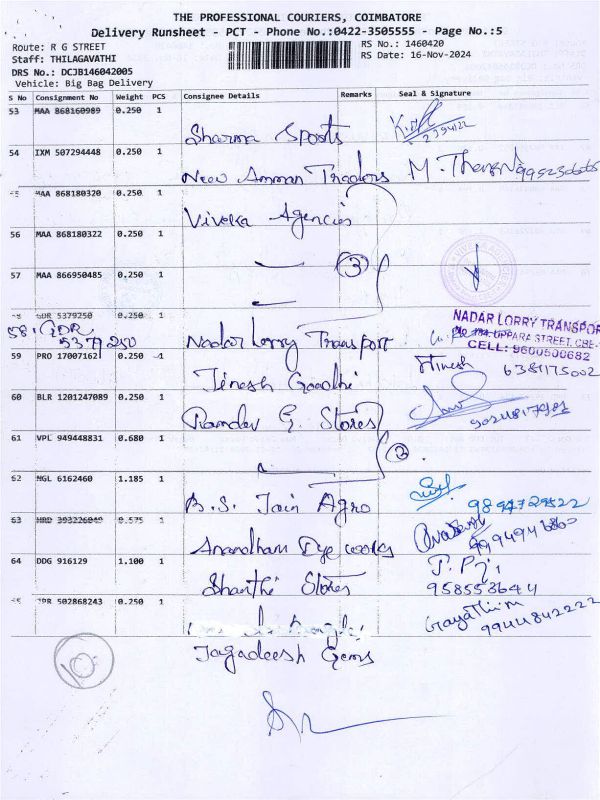 THE PROFESSIONAL COURIERS, COIMBATORE
Delivery Runsheet - PCT - Phone No.:0422-3505555 - Page No.:5
Route: R G STREET RS No.: 1460420
Staff: THILAGAVATHI RS Date: 16-Nov-2024
DRS No.: DCJB146042005
Vehicle: Big Bag Delivery
S No Consignment No Weight PCS Consignee Details Remarks Seal & Signature
53 MAA 868160989 0.250 1
Sharma Sports
54 IXM 507294448 0.250 1
New Amman Traders M.
MAA 868180320 0.250 1
Viveka Agencies
56 MAA 868180322 0.250 1
3
57 MAA 866950485 0.250 1
GDR 5379250 0.250 1
58. GDR 5379250
Nadar Lorry Transport
NADAR LORRY TRANSPOR
UPPARA STREET, CBE
CELL: 9600500682
59 PRO 17007162 0.250 1
Jinesh Gandhi 6381175002
60 BLR 1201247089 0.250 1
Ramdev G. Stores
61 VPL 949448831 0.680 1
2
62 NGL 6162460 1.185 1
B.S. Jain Agro
63 0.575 1
Anandham Dye works
64 DDG 916129 1.100 1
Shanthi Stores 958553644
502868243 0.250 1
Gayathiri
9944842222
Jagadeesh Gems